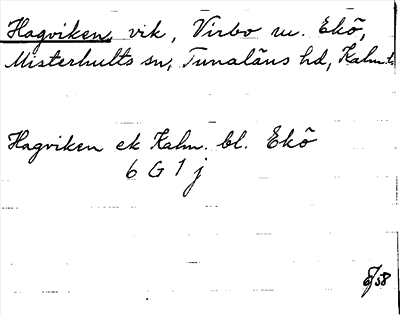 Hagviken, vik, Virbo m. Ekö,
Misterhults sn, Tunaläns hd, Kalm. l.
Hagviken ek Kalm. bl. Ekö
6 G 1 j
6/58